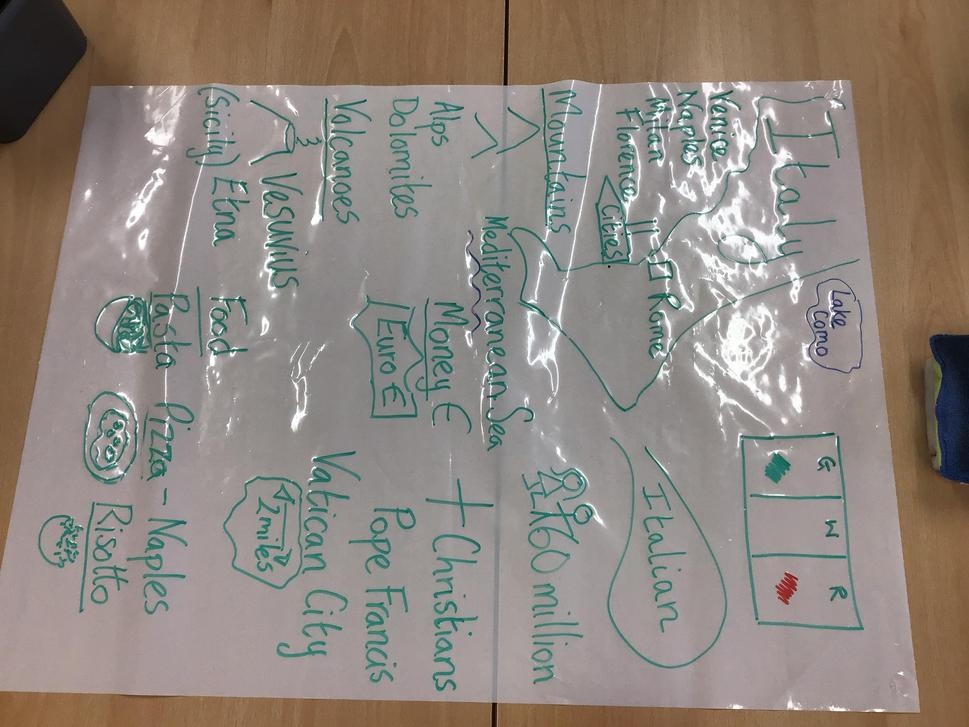 Italy
Lake
Como
G W R
Venice
Naples
Milan
Florence
Cities
Rome
Italian
Mountains
Mediterranean Sea
60 million
Alps
Dolomites
Money €
Euro €
+ Christians
Pope Francis
Vatican City
Volcanoes
Vesuvius
(Sicily) Etna
Food
Pasta
Pizza - Naples
Risotto